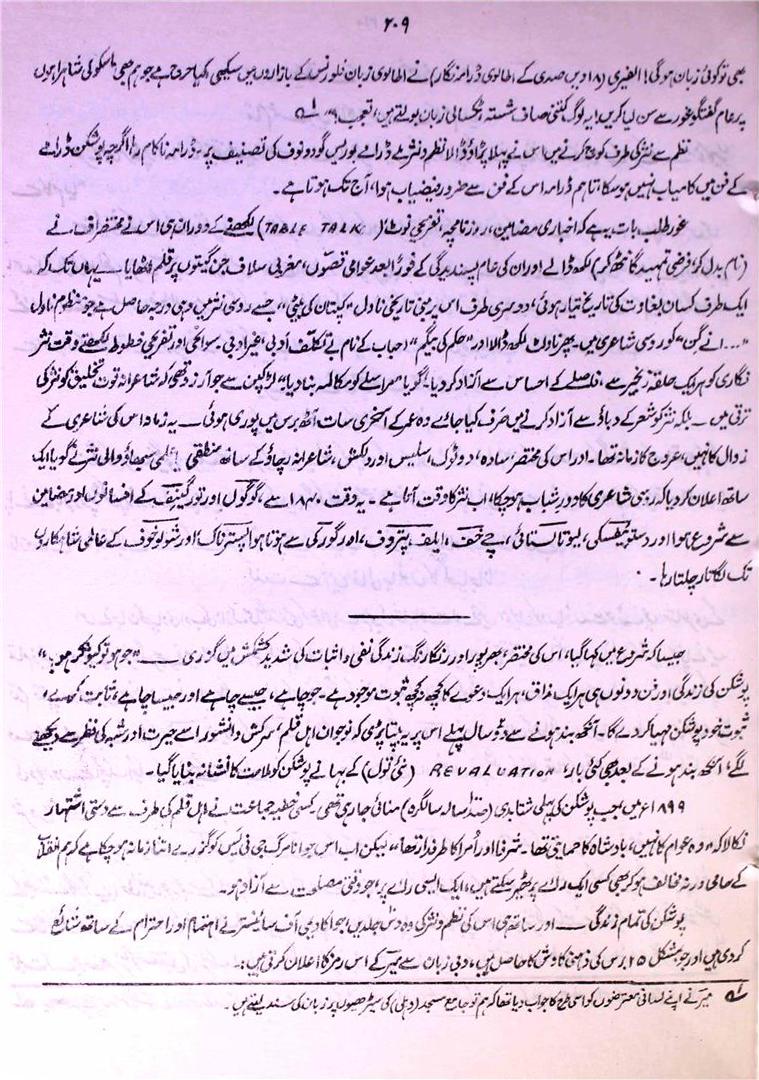 ۲۰۹
بھی تو کوئی زبان ہوگی! الفیری (۱۸ ویں صدی کے اطالوی ڈرامہ نگار) نے اطالوی زبان فلورنس کے بازاروں میں سیکھی، کیا حرج ہے جو ہم بھی ماسکو کی شاہراہوں
پر عام گفتگو غور سے سن لیا کریں! یہ لوگ کتنی صاف شستہ، ٹکسالی زبان بولتے ہیں، تعجب ہے" ۱؎
نظم سے نثر کی طرف کوچ کرنے میں اس نے پہلا پڑاؤ ڈالا نظم و نثر ملے ڈرامے بورس گودونوف کی تصنیف پر، ڈرامہ ناکام رہا اگرچہ پوشکن ڈرامے
کے فن میں کامیاب نہیں ہو سکا تاہم ڈرامہ اس کے فن سے ضرور فیضیاب ہوا، آج تک ہوتا ہے۔
غور طلب بات یہ ہے کہ اخباری مضامین، روزنامچہ، تفریحی نوٹ (TABLE TALK) لکھنے کے دوران ہی اس نے مختصر افسانے
(نام بدل کر فرضی تمہید گانٹھ کر) لکھ ڈالے اور ان کی عام پسندیدگی کے فوراً بعد عوامی قصوں، مغربی سلاف جن گیتوں پر قلم اٹھایا — یہاں تک کہ
ایک طرف کسان بغاوت کی تاریخ تیار ہوئی، دوسری طرف اس پر مبنی تاریخی ناول "کپتان کی بیٹی"، جسے روسی نثر میں وہی درجہ حاصل ہے جو منظوم ناول
"...انے گن" کو روسی شاعری میں۔ پھر ناولٹ لکھ ڈالا اور "حکم کی بیگم" احباب کے نام بے تکلف، ادبی، غیر ادبی، سوانحی اور تفریحی خطوط لکھتے وقت نثر
نگاری کو ہر ایک حلقہ زنجیر سے، فاصلے کے احساس سے آزاد کر دیا۔ گویا مراسلے کو مکالمہ بنا دیا! لڑکپن سے جو آرزو تھی کہ شاعرانہ قوت تخلیق کو نثر کی
ترقی میں — بلکہ نثر کو شعر کے دباؤ سے آزاد کرنے میں صرف کیا جائے وہ عمر کے آخری سات آٹھ برس میں پوری ہوئی — یہ زمانہ اس کی شاعری کے
زوال کا نہیں، عروج کا زمانہ تھا۔ اور اس کی مختصر، سادہ، دو ٹوک، سلیس اور دلکش، شاعرانہ رچاؤ کے ساتھ منطقی، علمی سبھاؤ والی نثر نے گویا ایک
ساتھ اعلان کر دیا کہ روسی شاعری کا دورِ شباب ہو چکا، اب نثر کا وقت آتا ہے۔ یہ وقت ۱۸۴۰ سے، گوگول اور تورگینیف کے افسانوں اور مضامین
سے شروع ہوا اور دستوئیفسکی، لیو تالستائی، چے خف، ایلف پتروف، اور گورکی سے ہوتا ہوا پسترناک اور شولوخوف کے عالمی شاہکاروں
تک لگاتار چلتا رہا۔
جیسا کہ شروع میں کہا گیا، اس کی مختصر، بھرپور اور رنگارنگ زندگی نفی و اثبات کی شدید کشمکش میں گزری — "جو ہو تو کیونکر ہو"
پوشکن کی زندگی اور فن دونوں ہی ہر ایک مذاق، ہر ایک دعوے کا کچھ نہ کچھ ثبوت موجود ہے۔ جو چاہے، جیسے چاہے اور جیسا چاہے، ثابت کر دے،
ثبوت خود پوشکن مہیا کر دے گا۔ آنکھ بند ہونے سے دو سال پہلے اس پر یہ بپتا پڑی کہ نوجوان اہل قلم سرکش دانشور اسے حیرت اور شبہ کی نظر سے دیکھنے
لگے، آنکھ بند ہونے کے بعد بھی کئی بار REVALUATION (نئی تول) کے بہانے پوشکن کو ملامت کا نشانہ بنایا گیا۔
۱۸۹۹ء میں جب پوشکن کی پہلی شتابدی (صد سالہ سالگرہ) منائی جا رہی تھی۔ کسی خفیہ جماعت نے اہل قلم کی طرف سے دستی اشتہار
نکالا کہ "وہ عوام کا نہیں، بادشاہ کا حمایتی تھا۔ شرفا اور امرا کا طرفدار تھا" لیکن اب اس جوانا مرگ جی نیس کو گزرے اتنا زمانہ ہو چکا ہے کہ ہم انقلاب
کے حامی اور نہ مخالف ہو کر بھی کسی ایک رائے پر ٹھہر سکتے ہیں، ایک ایسی رائے پر، جو وقتی مصلحت سے آزاد ہو۔
پوشکن کی تمام زندگی — اور ساتھ ہی اس کی نظم و نثر کی وہ دس جلدیں جو اکاڈیمی آف سائنسز نے اہتمام اور احترام کے ساتھ شائع
کر دی ہیں اور جو بمشکل ۲۵ برس کی ذہنی کاوش کا حاصل ہیں، دبی زبان سے میر کے اس رمز کا اعلان کرتی ہیں:۔
۱؎ میر نے اپنے لسانی معترضوں کو اسی طرح کا جواب دیا تھا کہ ہم تو جامع مسجد (دہلی) کی سیڑھیوں پر زبان کی سند لیتے ہیں۔